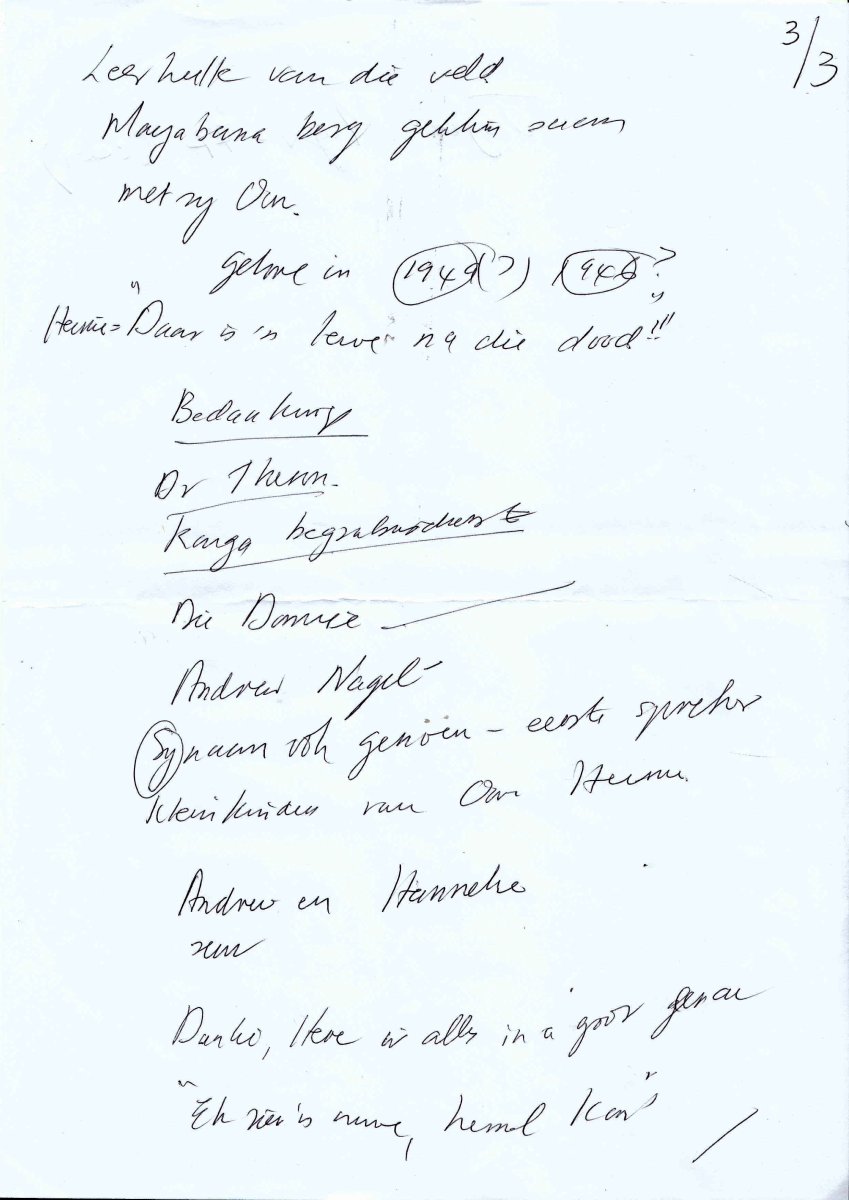 3/3
Leer hulle van die veld
Magabeng berg geklim saam
met sy Oom.
gelowe in 1949(?) 1946?
Hennie = "Daar is 'n lewe na die dood!!!"
Bedankings
Dr Theron.
Kanga begrafnisdienste
Die Dominee
Andrew Nagel
Sy naam ook genoem – eerste spreker
Kleinkinders van Oom Hennie.
Andrew en Hanneke
seun
Dankie, Here vir alles in u groot genade
"Ek sien 'n nuwe, hemel kom"